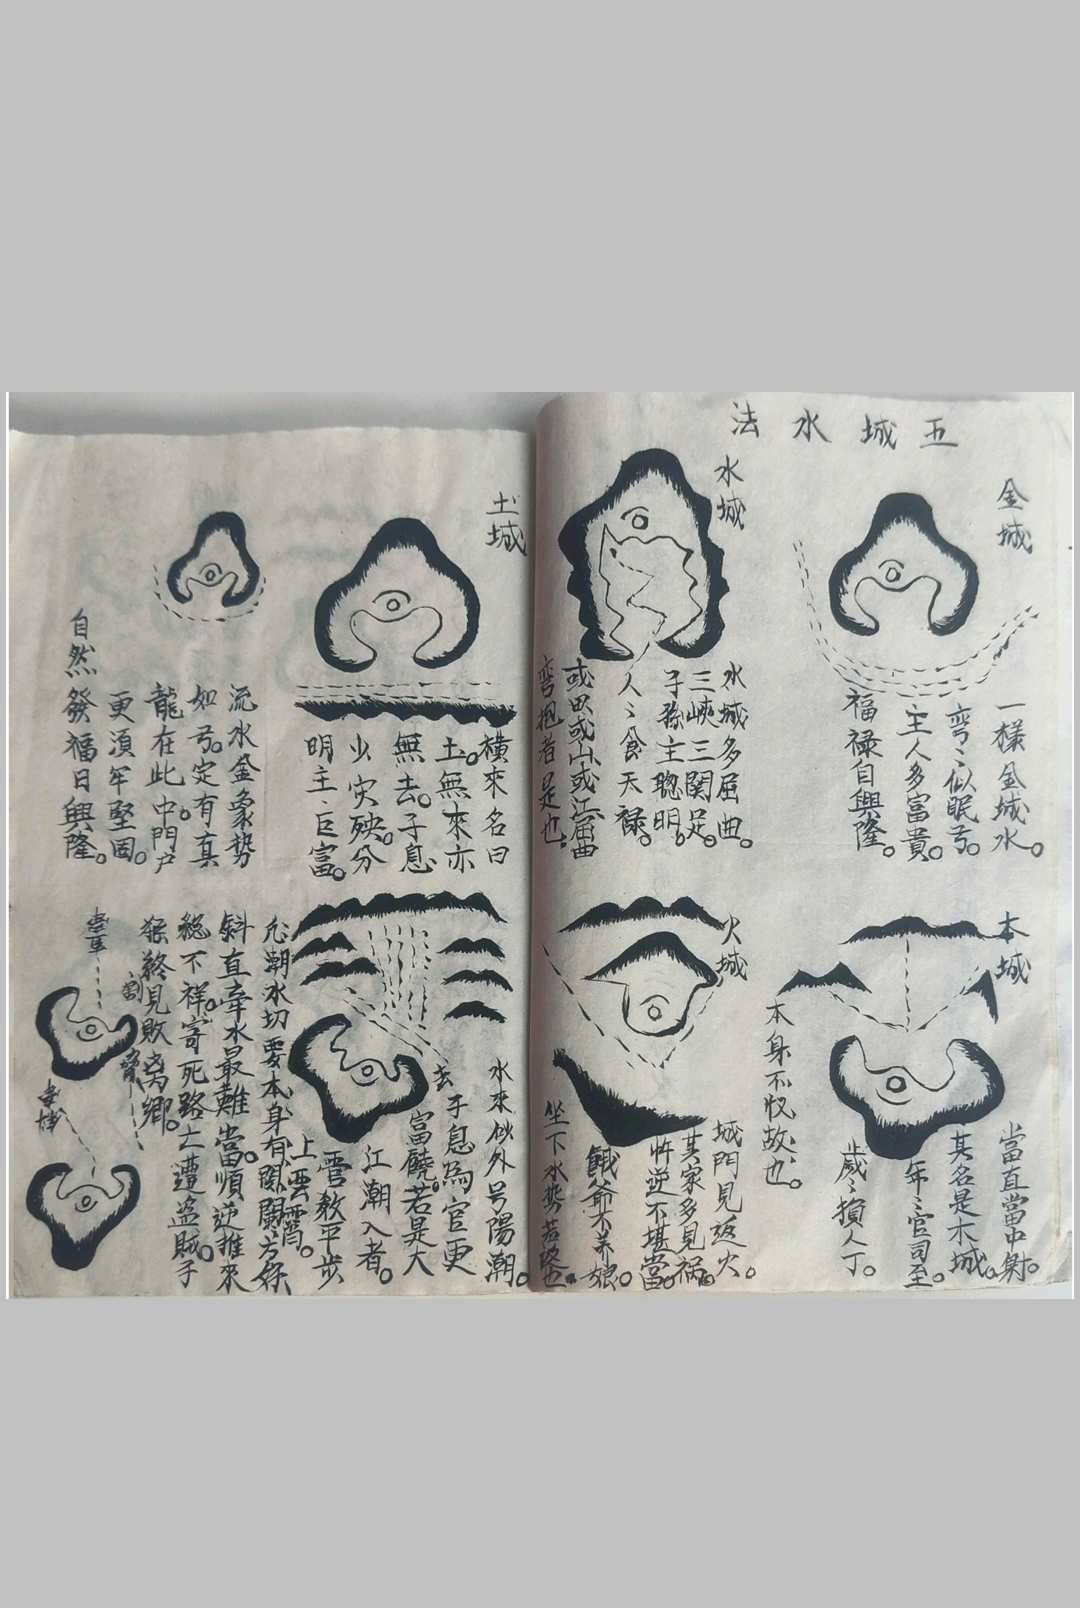 五城水法
金城
一樣金城水。
弯〻似眠弓。
主人多富貴。
福禄自興隆。
水城
水城多屈曲。
三峽三関足。
子孫主聰明。
人〻食天禄。
或田或山或江屈曲
弯抱者是也。
木城
當直當中射。
其名是木城。
年〻官司至。
歲〻損人丁。
本身不悅故也。
火城
城門見返火。
其家多見祸。
忤逆不堪當。
餓爺不养娘。
坐下水势若
土城
横來名曰
土。無來亦
無去。子息
少灾殃。分
明主巨富。
流水金象势
如弓。定有真
龍在此中。門户
更須牢堅固。
自然發福日興隆。
水來似外号陽潮。
去子息為官更
富饒。若是大
江潮入者。
管教平步
上雲霄。
凡潮水切要本身有関闌方好
斜直牵水最難當。順逆推來
總不祥。寄死路亡遭盗賊。子
孫終見敗离鄉。
割
脅
牽